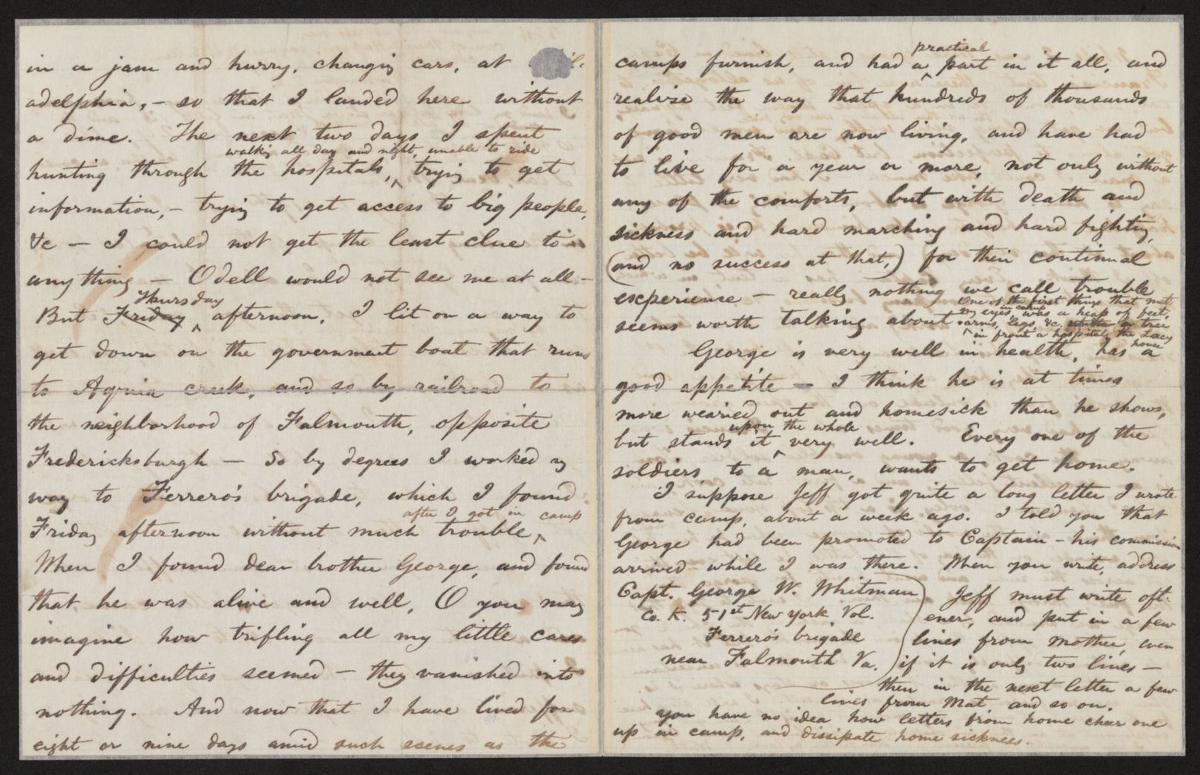 in a jam and hurry, changing cars, at
adelphia, – so that I landed here without
a dime. The next two days I spent
walking all day and night, unable to ride
hunting through the hospitals, ^ trying to get
information, – trying to get access to big people,
&c – I could not get the least clue to
anything – Odell would not see me at all –
Thursday
But Friday ^ afternoon, I lit on a way to
get down on the government boat that runs
to Aquia creek, and so by railroad to
the neighborhood of Falmouth, opposite
Fredericksburgh – So by degrees I worked my
way to Ferrero's brigade, which I found
after I got in camp
Friday afternoon without much trouble ^
When I found dear brother George, and found
that he was alive and well, O you may
imagine how trifling all my little cares
and difficulties seemed – they vanished into
nothing. And now that I have lived for
eight or nine days amid such scenes as the
practical
camps furnish, and had a ^ part in it all, and
realize the way that hundreds of thousands
of good men are now living, and have had
to live for a year or more, not only without
any of the comforts, but with death and
sickness and hard marching and hard fighting,
(and no success at that,) for their continual
experience – really nothing we call trouble
seems worth talking about
One of the first things that met
my eyes was a heap of feet,
arms, legs, &c. under a tree
^ in front a hospital, the Lacy
house
George is very well in health, has a
good appetite – I think he is at times
more wearied out and homesick than he shows,
upon the whole
but stands it ^ very well. Every one of the
soldiers, to a man, wants to get home.
I suppose Jeff got quite a long letter I wrote
from camp about a week ago. I told you that
George had been promoted to Captain – his commission
arrived while I was there. When you write, address
Capt. George W. Whitman
Co. K. 51st New York Vol.
Ferrero's brigade
near Falmouth Va.
Jeff must write oft-
ener, and put in a few
lines from mother, even
if it is only two lines –
then in the next letter a few
lines from Mat, and so on.
You have no idea how letters from home cheer one
up in camp, and dissipate home sickness.